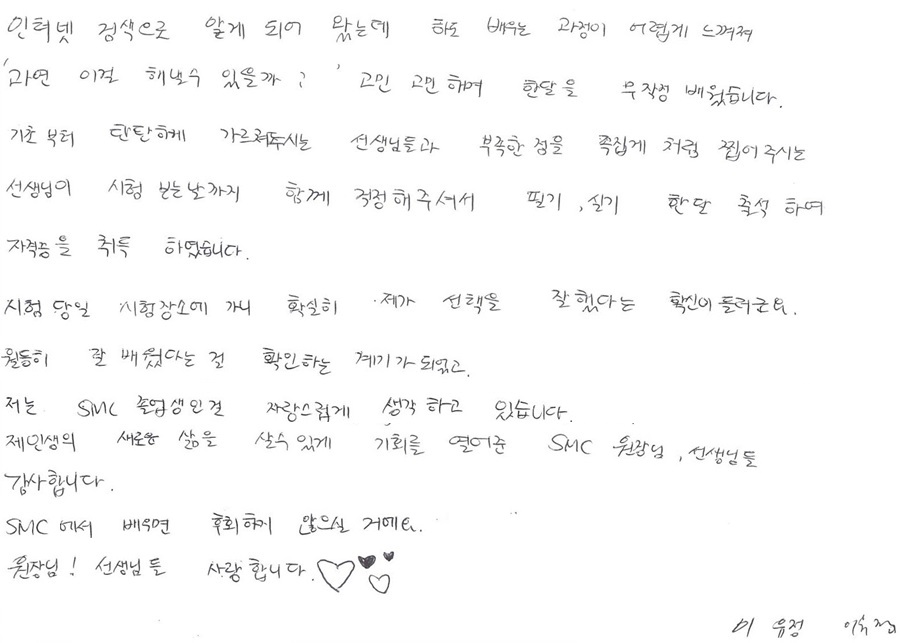 인터넷 검색으로 알게 되어 왔는데 하도 배우는 과정이 어렵게 느껴져
'과연 이걸 해낼수 있을까?' 고민 고민하며 한달을 무작정 배웠습니다.
기초부터 탄탄하게 가르쳐주시는 선생님들과 부족한 점을 족집게 처럼 찝어주시는
선생님이 시험 보는날까지 함께 걱정해주셔서 필기, 실기 한달 출석 하여
자격증을 취득 하였습니다.
시험 당일 시험장소에 가니 확실히 제가 선택을 잘했다는 확신이 들더군요.
월등히 잘 배웠다는 걸 확인하는 계기가 되었고.
저는 SMC 졸업생인걸 자랑스럽게 생각 하고 있습니다.
제인생의 새로운 삶을 살수있게 기회를 열어준 SMC 원장님, 선생님들
감사합니다.
SMC에서 배우면 후회하지 않으실 거예요.
원장님! 선생님들 사랑합니다.
이 유정